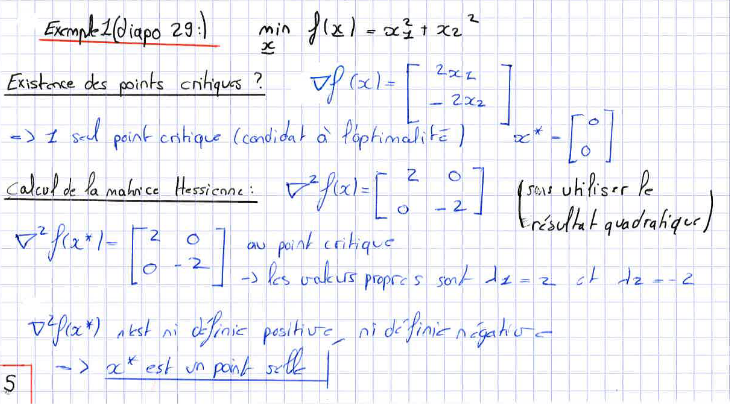 Exemple 1 (diapo 29:) min f(x) = x₁² + x₂²
x
Existence des points critiques ? ∇f(x) = [ 2x₁
- 2x₂ ]
=> 1 seul point critique (candidat à l'optimalité) x* = [ 0
0 ]
Calcul de la matrice Hessienne : ∇²f(x) = [ 2 0
0 -2 ] (sans utiliser le
résultat quadratique)
∇²f(x*) = [ 2 0
0 -2 ] au point critique
-> les valeurs propres sont λ1 = 2 et λ2 = -2
∇²f(x*) n'est ni définie positive, ni définie négative
-> x* est un point selle
5